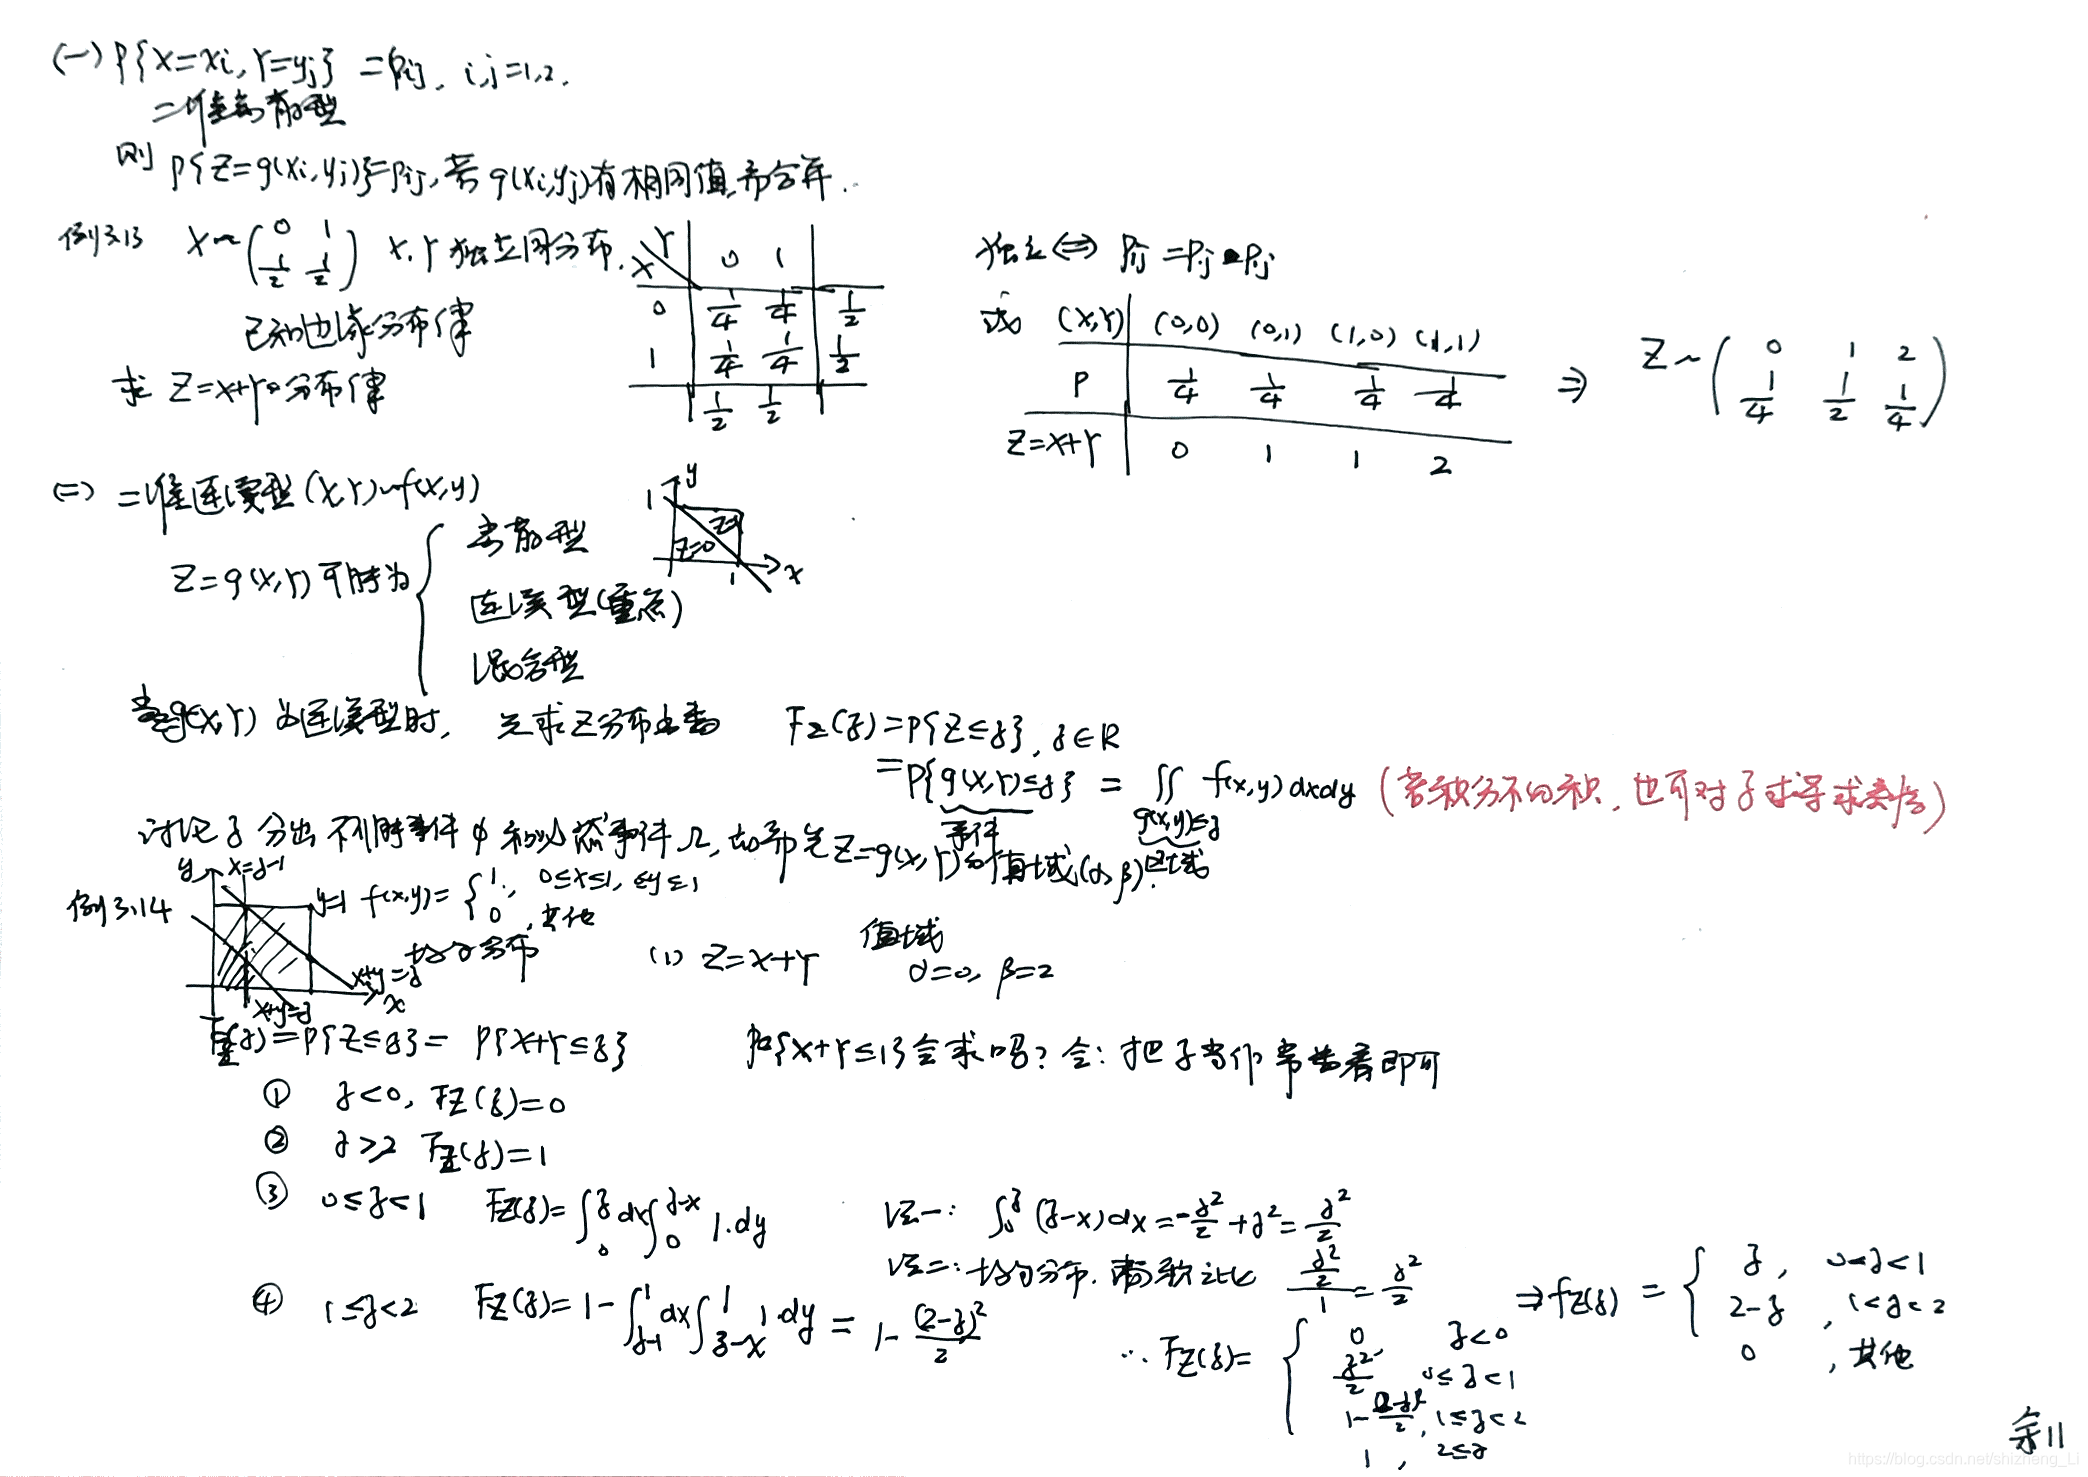 (一) P{X=xi, Y=yj} = pij, i,j=1,2.
二维离散型
则 P{Z=g(xi,yj)}=pij, 若 g(xi,yj)有相同值,需合并.
例3.13 X~(0 1 / 1/2 1/2) X,Y独立同分布.
已知边缘分布律
求 Z=X+Y的分布律
X\Y 0 1
0 1/4 1/4 1/2
1 1/4 1/4 1/2
1/2 1/2
独立⇔ Pij = Pi·P·j
或 (X,Y) (0,0) (0,1) (1,0) (1,1)
P 1/4 1/4 1/4 1/4
Z=X+Y 0 1 1 2
⇒ Z~(0 1 2 / 1/4 1/2 1/4)
(二) 二维连续型(X,Y)~f(x,y)
Z=g(X,Y)可能为 { 离散型
连续型(重点)
混合型
y 1 Z=1 Z=0 1 x
当g(X,Y)为连续型时, 先求Z分布函数 FZ(z)=P{Z≤z}, z∈R
=P{g(X,Y)≤z} = ∬ f(x,y)dxdy (若积分不好积,也可对z求导求密度)
事件 g(x,y)≤z 区域
讨论z分出不可能事件φ和必然事件Ω,如需先Z=g(X,Y)的值域(α,β).
例3.14 y x=z-1 y=1 x+y=z x+y=z x
f(x,y)={1, 0≤x≤1, 0≤y≤1
0, 其他
均匀分布
(1) Z=X+Y 值域
α=0, β=2
FZ(z)=P{Z≤z}= P{X+Y≤z} P{X+Y≤1}会求吗? 会: 把z当作常数看即可
① z<0, FZ(z)=0
② z≥2 FZ(z)=1
③ 0≤z<1 FZ(z)=∫₀^z dx∫₀^(z-x) 1·dy 法一: ∫₀^z (z-x)dx=-z²/2+z²=z²/2
法二: 均匀分布. 面积之比 (z²/2)/1=z²/2
④ 1≤z<2 FZ(z)=1-∫_(z-1)^1 dx∫_(z-x)^1 1·dy = 1-(2-z)²/2
∴ FZ(z)= { 0, z<0
z²/2, 0≤z<1
1-(2-z)²/2, 1≤z<2
1, 2≤z
⇒fZ(z) = { z, 0<z<1
2-z, 1<z<2
0, 其他
https://blog.csdn.net/shizheng_Li